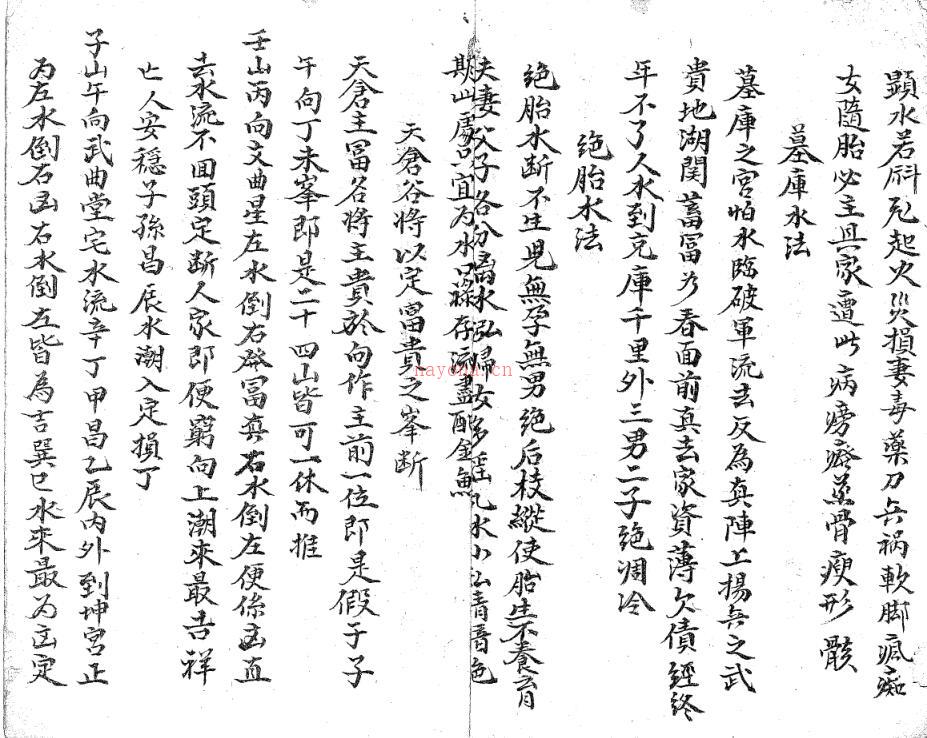 顕水若斜死起火災損妻毒藥刀兵禍軟脚瘋痴
女隨胎必主其家遭此病癆瘵蒸骨瘦形骸
墓庫水法
墓庫之宮怕水臨破軍流去反為真陣上揚兵之武
貴地湖関蓄富乃春面前真去家資薄欠債經終
年不了人水到克庫千里外三男二子絶凋冷
絶胎水法
絶胎水断不生児無孕無男絶后枝縱使胎生不養育
夫妻父子各分离水泓歸女多淫乱水小公青音色
期此處只宜為水口禄存流盡配金魚
天倉谷將以定富貴之峯断
天倉主冨谷將主貴於向作主前一位即是假子子
午向丁未峯即是二十四山皆可一休而推
壬山丙向文曲星左水倒右發冨真右水倒左便係凶直
去水流不回頭定断人家即便窮向上潮來最吉祥
亡人安穩子孫昌辰水潮入定損丁
子山午向武曲堂宅水流辛丁甲昌乙辰内外到坤宮正
為左水倒右凶右水倒左皆為吉巽巳水來最為凶定
nayona.cn